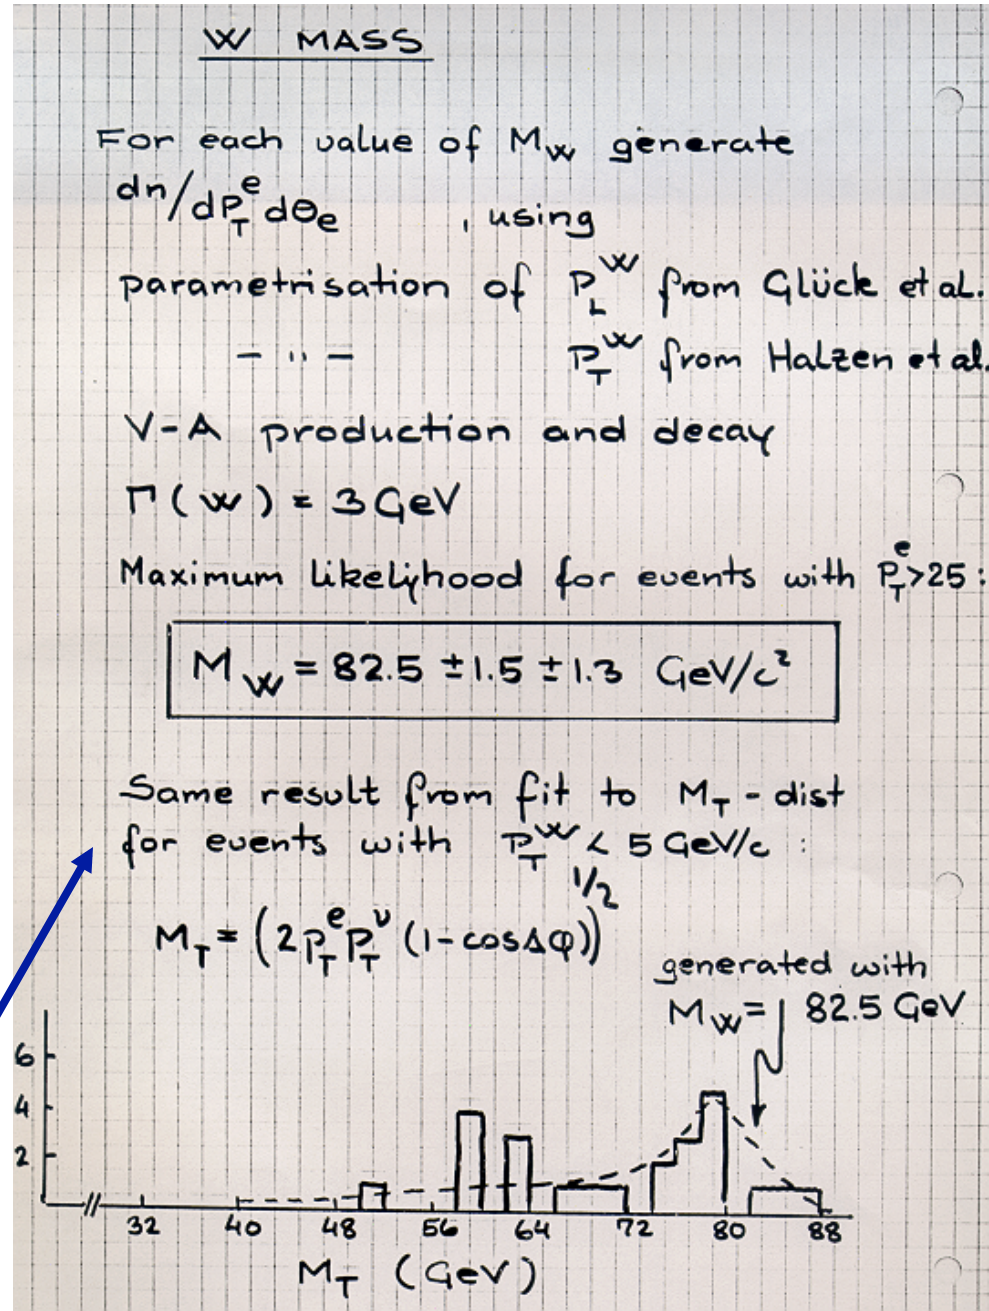 W MASS
For each value of M_W generate
dn/dP_T^e dθ_e , using
parametrisation of P_L^W from Glück et al.
– " – P_T^W from Halzen et al.
V-A production and decay
Γ(W) = 3 GeV
Maximum likelyhood for events with P_T^e>25:
M_W = 82.5 ±1.5 ±1.3 GeV/c²
Same result from fit to M_T - dist
for events with P_T^W < 5 GeV/c :
M_T = (2P_T^e P_T^ν (1-cosΔφ))^1/2
generated with
M_W = 82.5 GeV
6
4
2
32 40 48 56 64 72 80 88
M_T (GeV)